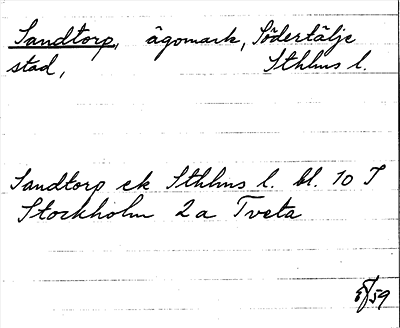 Sandtorp, ägomark, Södertälje
stad, Sthlms l.
Sandtorp ek Sthlms l. bl. 10 T
Stockholm 2a Tveta
59